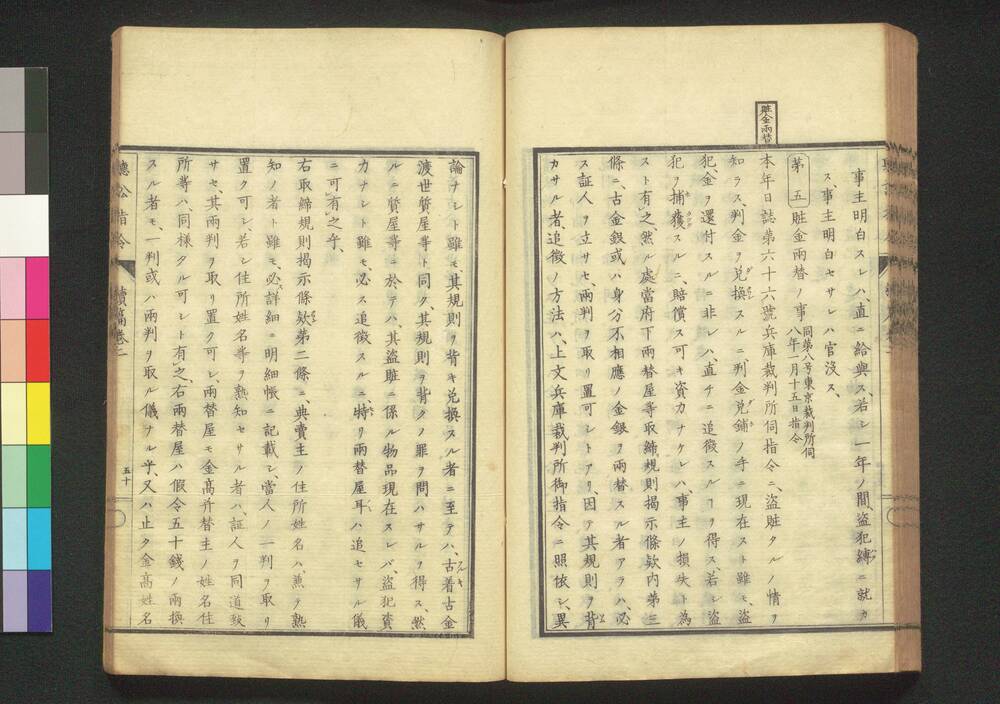 賍金兩替
事主明白スレハ、直ニ給與ス、若シ一年ノ間、盜犯縛ニ就カ
ス、事主明白セサレハ官沒ス、
第五 賍金兩替ノ事 同第八号東京裁判所伺 八年一月十五日指令
本年日誌第六十六號兵庫裁判所伺指令ニ、盜賍タルノ情ヲ
知ラス、判金ヲ兌換スルニ、判金兌鋪ノ手ニ現在スト雖モ、盜
犯、金ヲ還付スルニ非レハ、直チニ追徵スルヿヲ得ス、若シ盜
犯ヲ捕獲スルニ、賠償ス可キ資力ナケレハ、事主ノ損失ト為
スト有之然ル處當府下兩替屋等取締規則揭示條欵内第三
條ニ、古金銀或ハ身分不相應ノ金銀ヲ兩替スル者アラハ、必
ス証人ヲ立サセ、兩判ヲ取リ置可シトアリ、因テ其規則ヲ背
カサル者、追徵ノ方法ハ、上文兵庫裁判所御指令ニ照依シ、異
論ナシト雖モ、其規則ヲ背キ兌換スル者ニ至テハ、古着古金
渡世質屋等ト同ク其規則ヲ背クノ罪ヲ問ハサルヲ得ス、然
ルニ質屋等ニ於テハ、其盜賍ニ係ル物品現在スレハ、盜犯資
力ナシト雖モ、必ス追徵スルニ、特リ兩替屋耳ハ追セサル儀
ニ可有之乎、
右取締規則揭示條欵第二條ニ、典賣主ノ住所姓名ハ、熏テ熟
知ノ者ト雖モ、必詳細ニ明細帳ニ記載シ、當人ノ一判ヲ取リ
置ク可シ、若シ住所姓名等ヲ熟知セサル者ハ、証人ヲ同道致
サセ、其兩判ヲ取リ置ク可シ、兩替屋モ金高幷替主ノ姓名住
所等ハ、同樣タル可シト有之、右兩替屋ハ假令五十錢ノ兩換
スル者モ、一判或ハ兩判ヲ取ル儀ナル乎、又ハ止タ金高姓名
聽訟指令 續篇卷二
五十